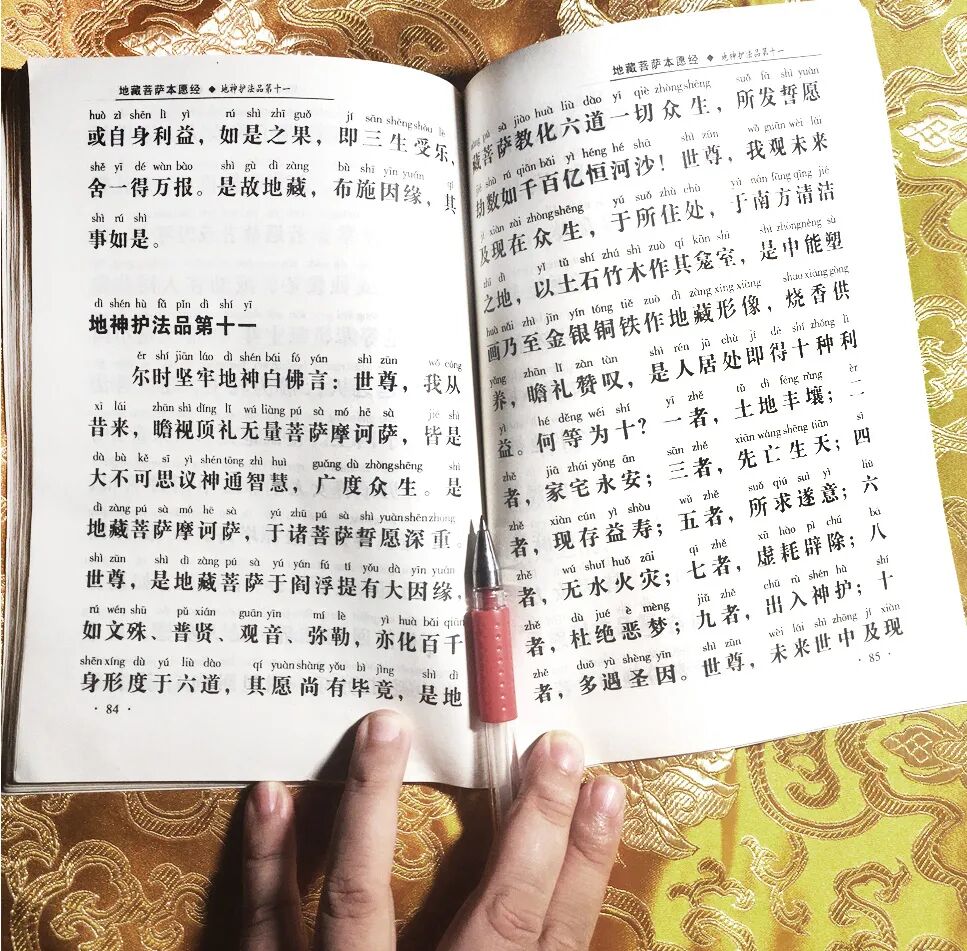 地藏菩萨本愿经 ◆ 地神护法品第十一
huò zì shēn lì yì rú shì zhī guǒ jí sān shēng shòu lè
或自身利益，如是之果，即三生受乐，
shě yī dé wàn bào shì gù dì zàng bù shī yīn yuán qí
舍一得万报。是故地藏，布施因缘，其
shì rú shì
事如是。
dì shén hù fǎ pǐn dì shí yī
地神护法品第十一
ěr shí jiān láo dì shén bái fó yán shì zūn wǒ cóng
尔时坚牢地神白佛言：世尊，我从
xī lái zhān shì dǐng lǐ wú liàng pú sà mó hē sà jiē shì
昔来，瞻视顶礼无量菩萨摩诃萨，皆是
dà bù kě sī yì shén tōng zhì huì guǎng dù zhòng shēng shì
大不可思议神通智慧，广度众生。是
dì zàng pú sà mó hē sà yú zhū pú sà shì yuàn shēn zhòng
地藏菩萨摩诃萨，于诸菩萨誓愿深重。
shì zūn shì dì zàng pú sà yú yán fú tí yǒu dà yīn yuán
世尊，是地藏菩萨于阎浮提有大因缘，
rú wén shū pǔ xián guān yīn mí lè yì huà bǎi qiān
如文殊、普贤、观音、弥勒，亦化百千
shēn xíng dù yú liù dào qí yuàn shàng yǒu bì jìng shì dì
身形度于六道，其愿尚有毕竟，是地
· 84 ·
地藏菩萨本愿经 ◆ 地神护法品第十一
pú sà jiào huà liù dào yī qiè zhòng shēng suǒ fā shì yuàn
藏菩萨教化六道一切众生，所发誓愿
shù rú qiān bǎi yì héng hé shā shì zūn wǒ guān wèi lái
劫数如千百亿恒河沙！世尊，我观未来
jí xiàn zài zhòng shēng yú suǒ zhù chù yú nán fāng qīng jié
及现在众生，于所住处，于南方清洁
zhī dì yǐ tǔ shí zhú mù zuò qí kān shì shì zhōng néng sù
之地，以土石竹木作其龛室，是中能塑
huà nǎi zhì jīn yín tóng tiě zuò dì zàng xíng xiàng shāo xiāng gòng
画乃至金银铜铁作地藏形像，烧香供
yǎng zhān lǐ zàn tàn shì rén jū chù jí dé shí zhǒng lì
养，瞻礼赞叹，是人居处即得十种利
yì hé děng wéi shí yī zhě tǔ dì fēng rǎng èr
益。何等为十？一者，土地丰壤；二
zhě jiā zhái yǒng ān sān zhě xiān wáng shēng tiān sì
者，家宅永安；三者，先亡生天；四
zhě xiàn cún yì shòu wǔ zhě suǒ qiú suì yì liù
者，现存益寿；五者，所求遂意；六
zhě wú shuǐ huǒ zāi qī zhě xū hào pì chú bā
者，无水火灾；七者，虚耗辟除；八
zhě dù jué è mèng jiǔ zhě chū rù shén hù shí
者，杜绝恶梦；九者，出入神护；十
zhě duō yù shèng yīn shì zūn wèi lái shì zhōng jí xiàn
者，多遇圣因。世尊，未来世中及现
· 85 ·